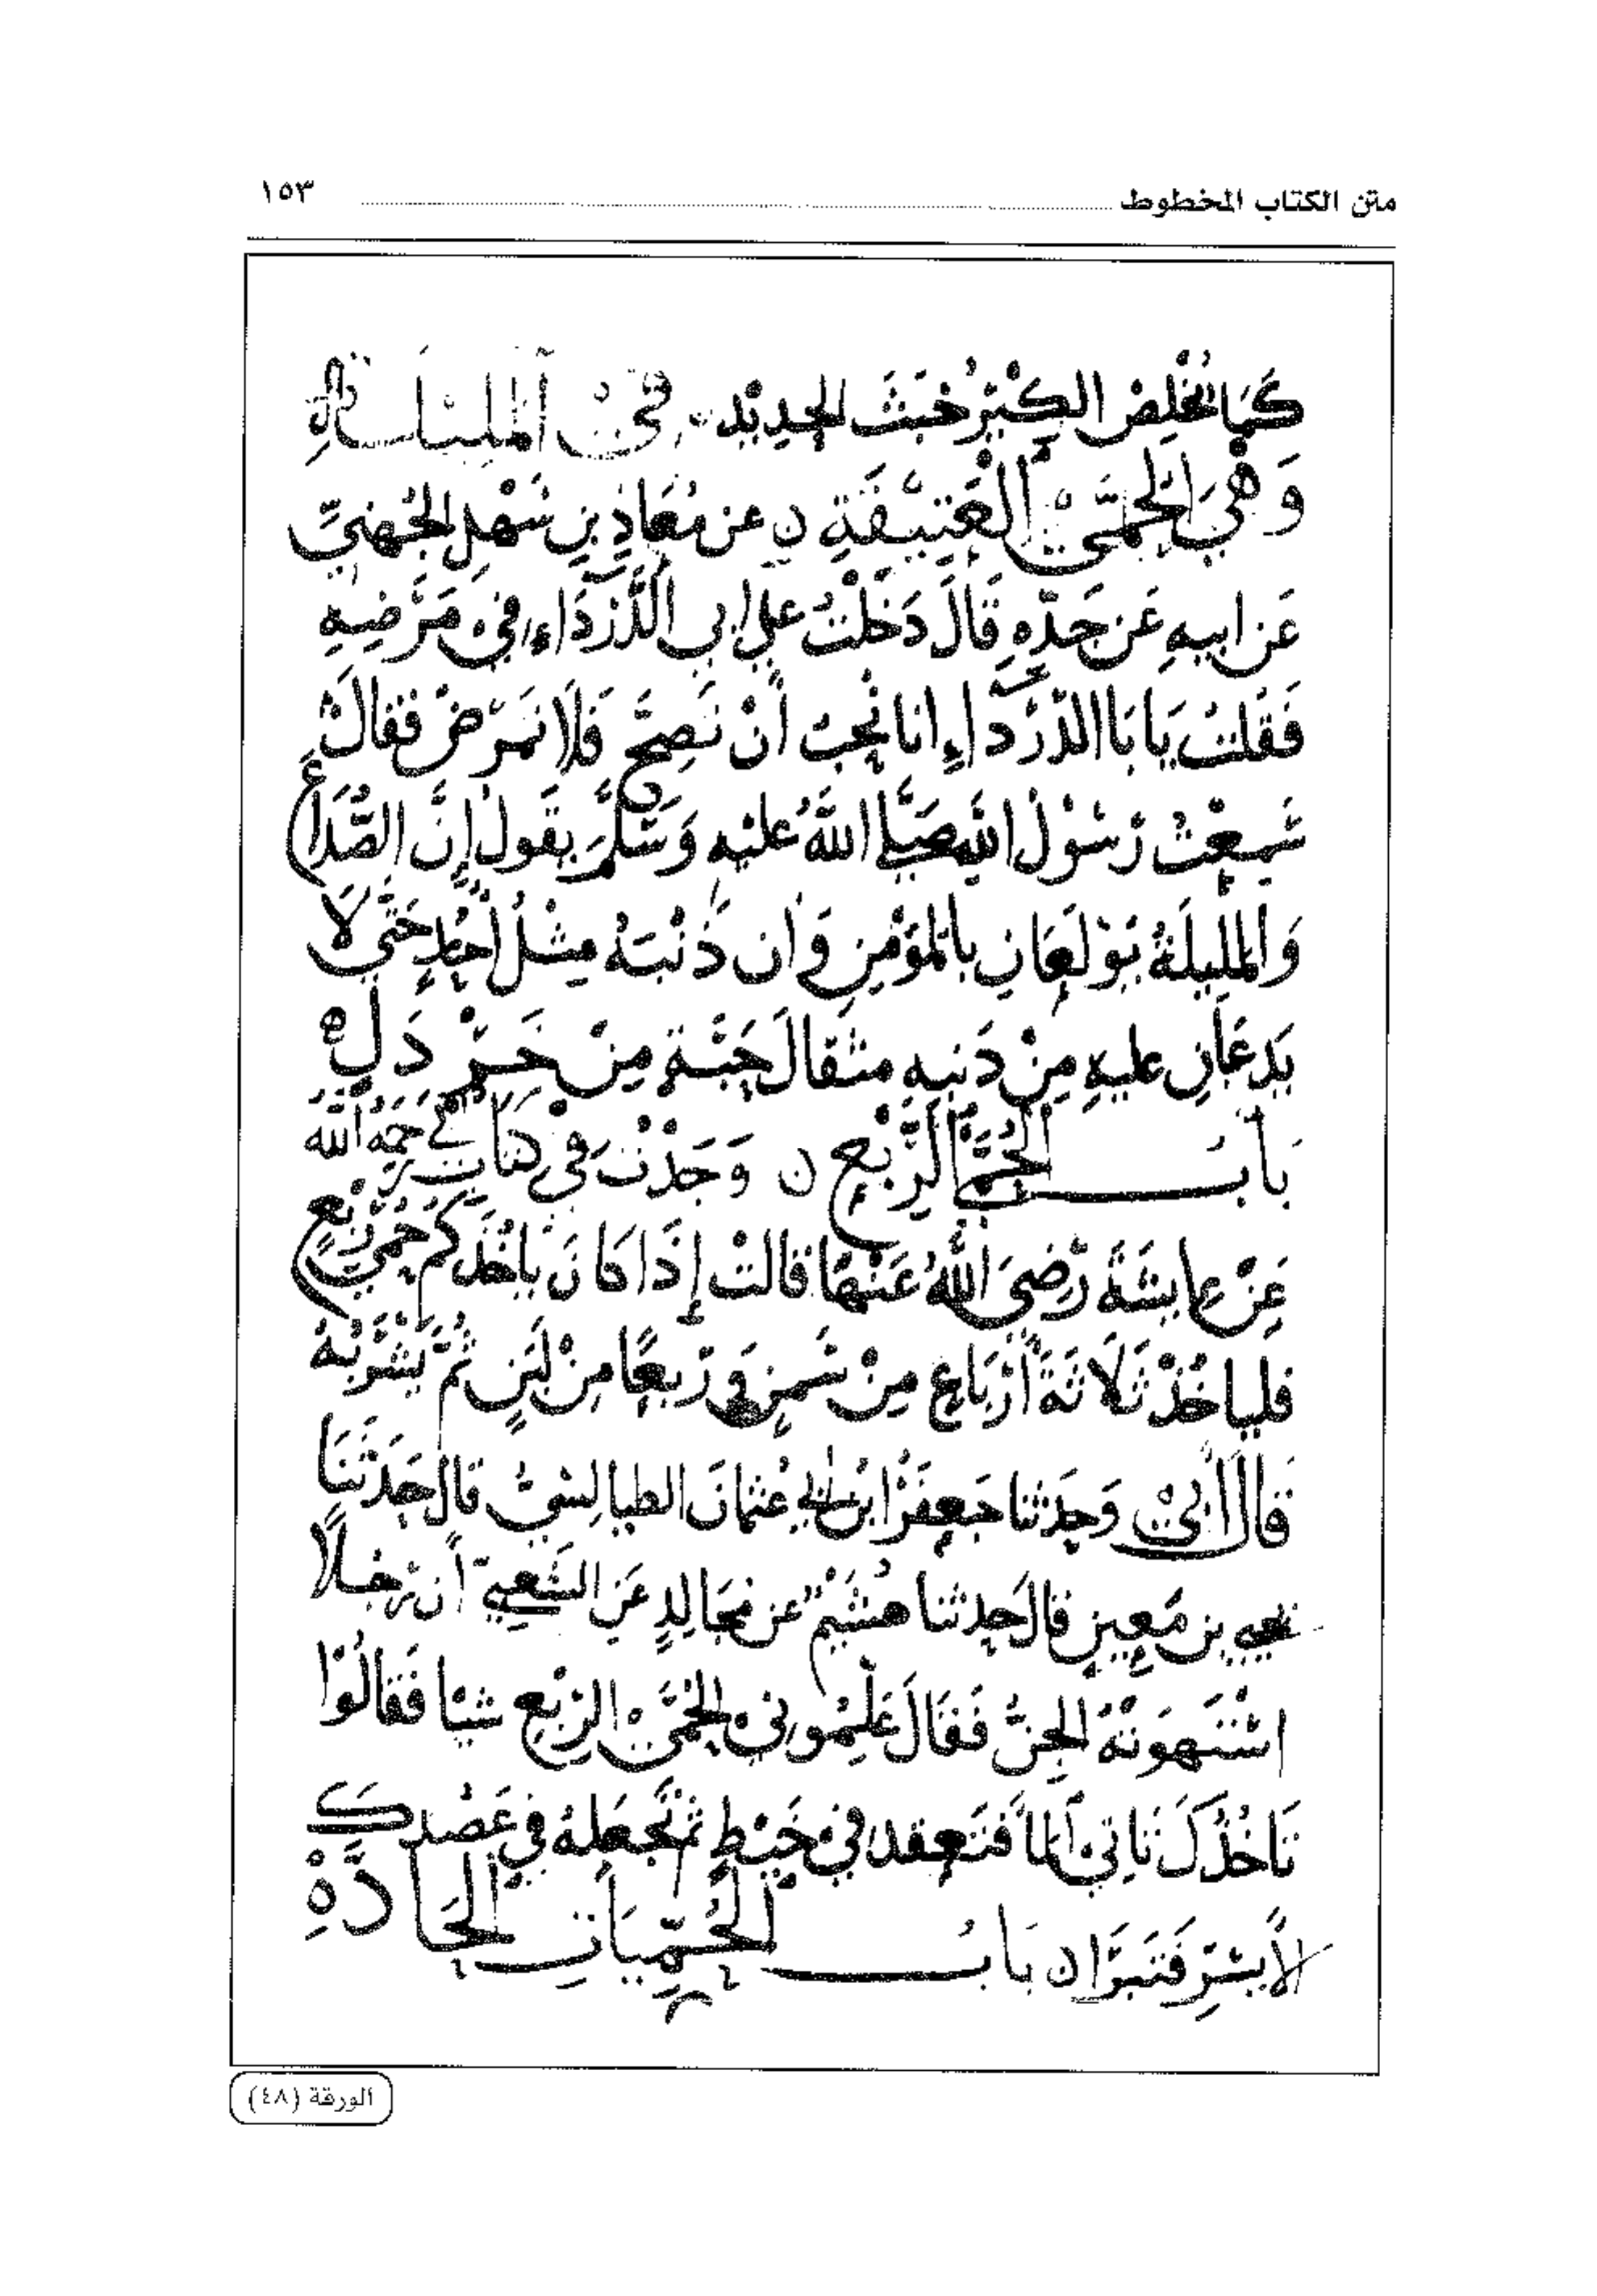 متن الكتاب المخطوط ١٥٣
كَمَا يُخْلِصُ الكِيْرُ خَبَثَ الحَدِيْدِ فِى المَلِيلَةِ
وَهْيَ الحُمَّىْ العَتِيْقَةِ ن عن مُعَاذِ بنِ سَهْلِ الجُهَنِيِّ
عَن ابيهِ عَن جَدِّهِ قَالَ دَخَلْتُ على ابى الدَّرْدَاءِ فِى مَرَضِهِ
فَقُلتُ يَا بَا الدَّرْدَاءِ انا نُحِبُّ أَنْ نَصِحَّ فَلَا نَمْرَضُ فقالَ
سَمِعْتُ رَسُوْلَ اللهِ صَلَّى اللَّهُ عَلَيْهِ وَسَلَّمَ يقَولُ إِنَّ الصُّدَاعَ
وَالمَلِيلَةَ يَوْلَعَانِ بالمُؤمْنِ وَان ذَنْبَهُ مِثْلُ أُحُدٍ حَتَّى لَا
يَدعَانِ عليهِ مِنْ ذَنبِهِ مثقالَ حَبَّةٍ مِنْ خَرْدَلٍ ه
بَابُ الحُمَّى الرَّبْعِ ن وَجَدْتُ فِى كتابِ أبى رحمَهُ اللَّهُ
عَنْ عايشَةَ رَضِىَ اللَّهُ عَنْهَا قالتْ إِذَا كَانَ يَاخُذَكُم حُمَّى رِبْعٍ
فلياخُذْ ثَلَاثَةَ أَرْبَاعٍ مِنْ سَمنٍ وَرُبعًا مِنْ لَبَنٍ ثُمَّ يَشْرَبُهُ
قَالَ أَبِىْ وَحَدَثنا جَعفَرُ ابنُ ابى عُثمانَ الطيالِسِىُّ قالَ حَدَثَنَا
يحيى بن مَعِينٍ قالَ حَدثنا هُشَيْمٌ عن مُجَالِدٍ عَنِ الشَّعبِىّ أَن رَجُلًا
اسْتَهوَتْهُ الجِنُّ فَقَالَ عَلِّمُونِى لِلحُمَّىْ الرِّبْعِ شَيْا فَقالُوْا
تَاخُذُ لَكَ تَاتِىَ المَا فَتَعقد فِى خَيْطٍ ثم تَجْعَلهُ فِى عَضُدِكَ
الأَيسَرِ فَتَبرَا ن بَابُ الحُمِّيَاتِ الحَادَّةِ
الورقة (٤٨)